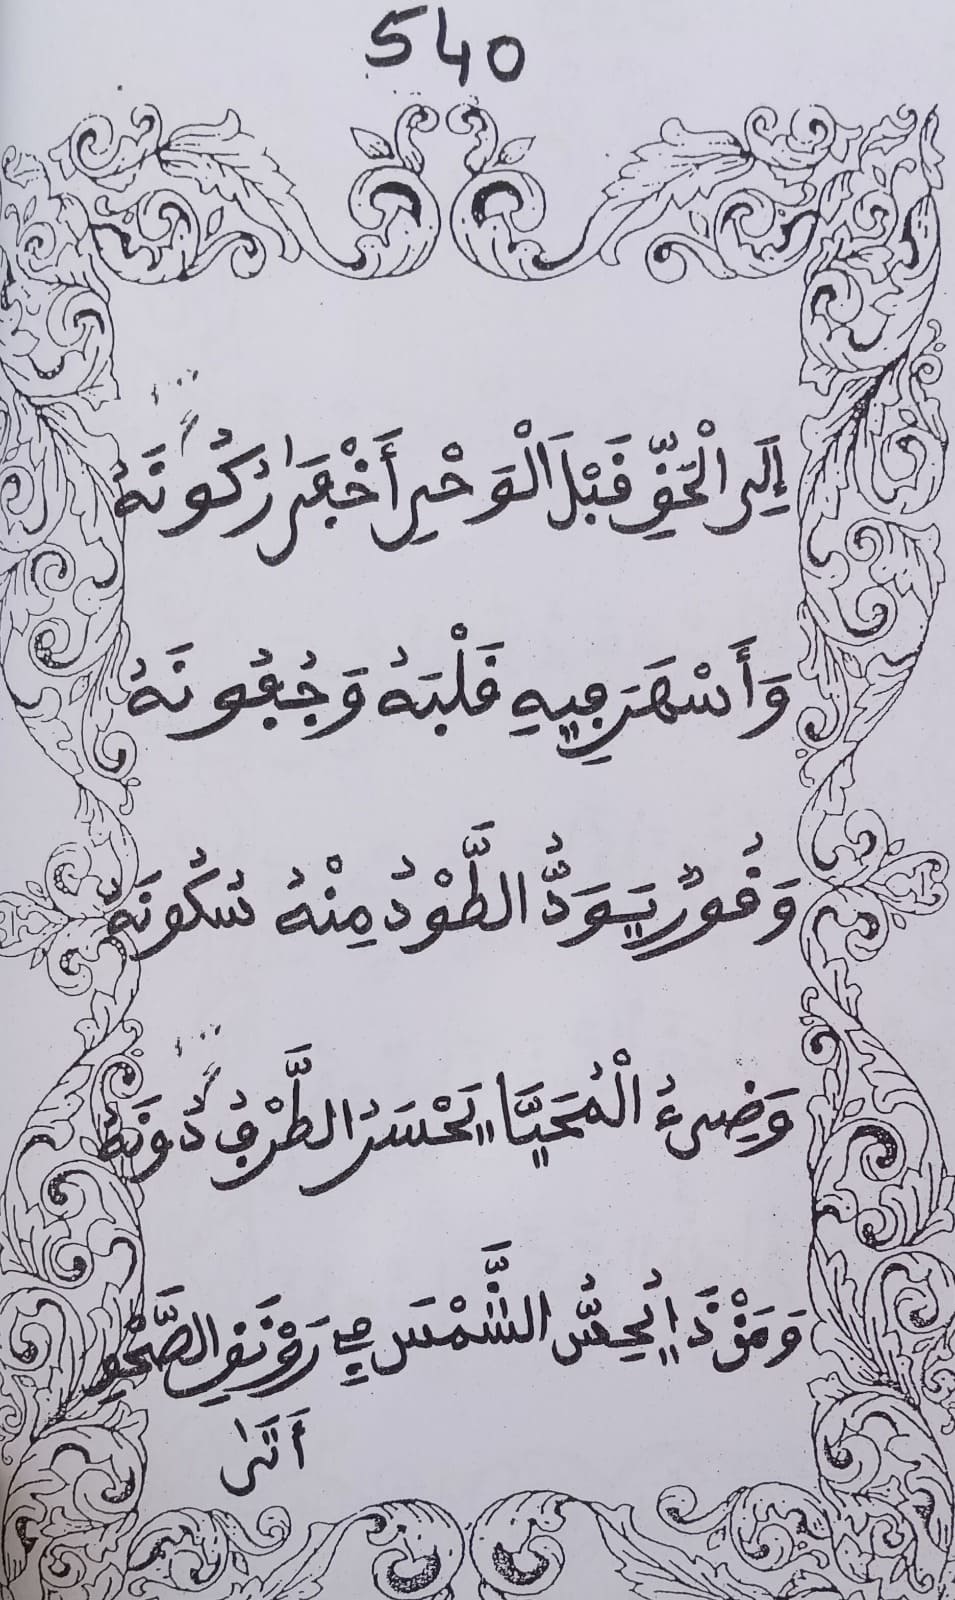 540
إِلَى الْحَقِّ قَبْلَ الْوَحْيِ أَخْفَى رُكُونَهُ
وَأَسْهَرَ فِيهِ قَلْبَهُ وَجُفُونَهُ
وَقُورٌ يَوَدُّ الطَّوْدُ مِنْهُ سُكُونَهُ
وَضِىءُ الْمُحَيَّا يَحْسَرُ الطَّرْفُ دُونَهُ
يُحِسُّ الشَّمْسَ فِي رَوْنَقِ الضَّحْوِ
أَتَى